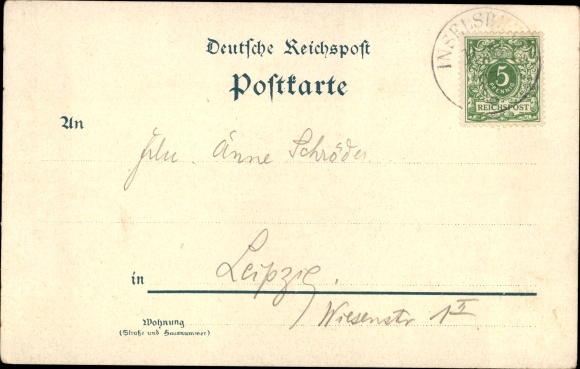 INSELSB
5
PFENNIG
REICHSPOST
Deutsche Reichspost
Postkarte
An
Frln. Änne Schröder
in Leipzig.
Wohnung Wiesenstr 1 II
(Straße und Hausnummer)